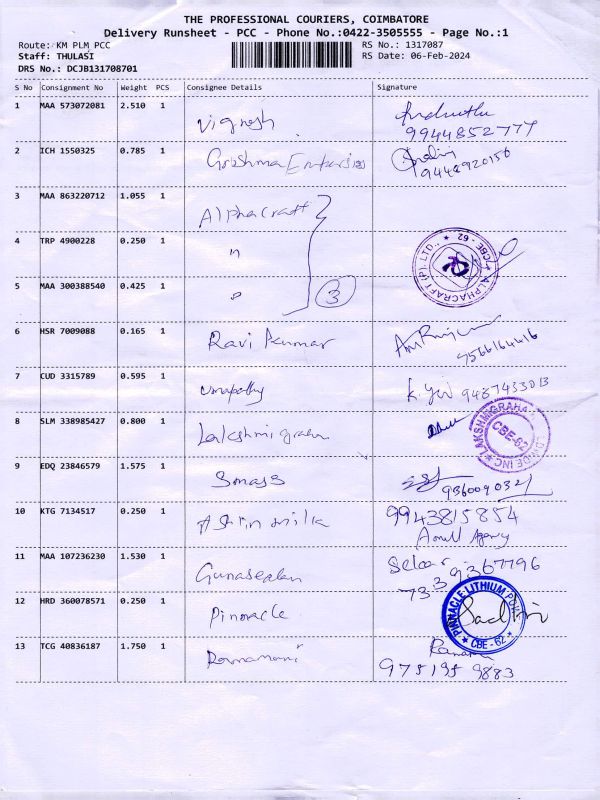 THE PROFESSIONAL COURIERS, COIMBATORE
Delivery Runsheet - PCC - Phone No.:0422-3505555 - Page No.:1
Route: KM PLM PCC RS No.: 1317087
Staff: THULASI RS Date: 06-Feb-2024
DRS No.: DCJB131708701
S No Consignment No Weight PCS Consignee Details Signature
1 MAA 573072081 2.510 1 Vignesh
9944852777
2 ICH 1550325 0.785 1
3 MAA 863220712 1.055 1 Alphacraft
4 TRP 4900228 0.250 1 "
ALPHACRAFT (P) LTD., ★ CBE - 62 ★
5 MAA 300388540 0.425 1 " 3
6 HSR 7009088 0.165 1 Ravi Kumar
7566164616
7 CUD 3315789 0.595 1 Umapathy 9487433013
8 SLM 338985427 0.800 1 Lakshmigraha
LAKSHMIGRAHA CBE-62
9 EDQ 23846579 1.575 1
9360090321
10 KTG 7134517 0.250 1 9943815854
Amul Agency
11 MAA 107236230 1.530 1 Gunasealan
12 HRD 360078571 0.250 1 Pinnacle
PINNACLE LITHIUM POW ★ CBE - 62 ★
13 TCG 40836187 1.750 1 Ramamani
975195 9883